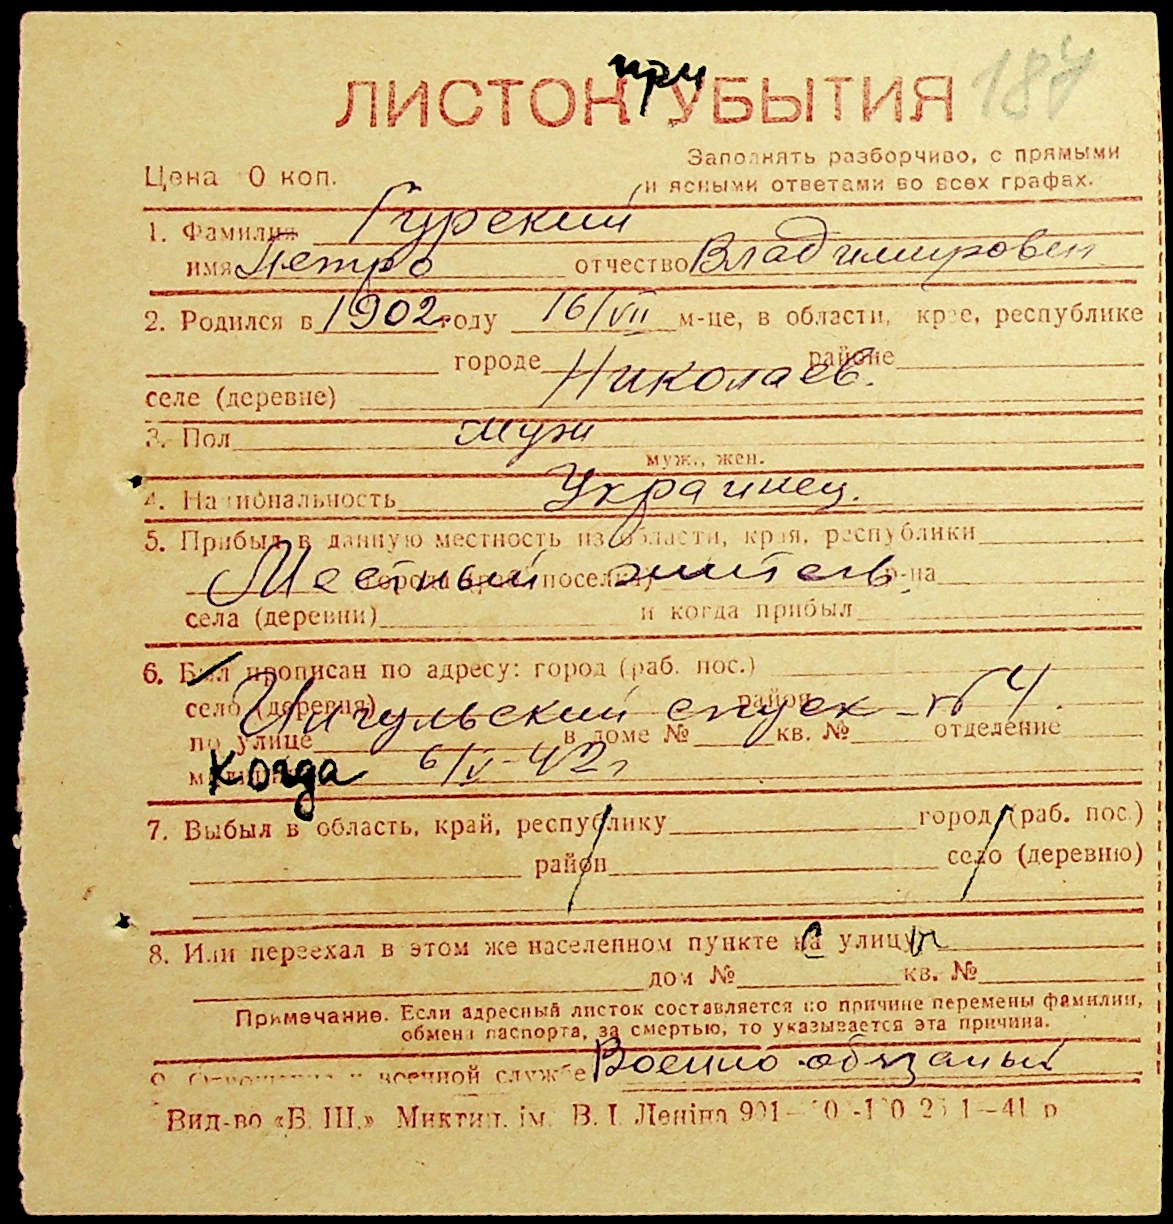 при
ЛИСТОК УБЫТИЯ 187
Заполнять разборчиво, с прямыми
Цена 0 коп. и ясными ответами во всех графах.
1. Фамилия Гурский
имя Петро отчество Владимирович
2. Родился в 1902 году 16/VII м-це, в области, крае, республике
городе Николаев. районе
селе (деревне)
3. Пол муж
муж., жен.
4. Национальность Украинец.
5. Прибыл в данную местность из области, края, республики
Местный житель р-на
села (деревни) и когда прибыл
6. Был прописан по адресу: город (раб. пос.)
село (деревня) Ингульский спуск - № 4. район
по улице в доме № кв. № отделение
Когда 6/V-42 г
7. Выбыл в область, край, республику город (раб. пос.)
район село (деревню)
8. Или переехал в этом же населенном пункте с улицы
дом № кв. №
Примечание. Если адресный листок составляется по причине перемены фамилии,
обмена паспорта, за смертью, то указывается эта причина.
9. Отношение к военной службе Военно-обязаный
Вид-во «Б. Ш.» Миктип. ім. В. І. Леніна